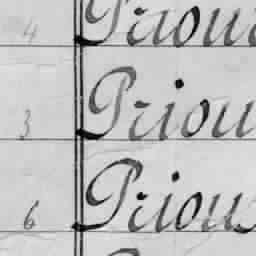 4 Priou
3 Priou
6 Priou